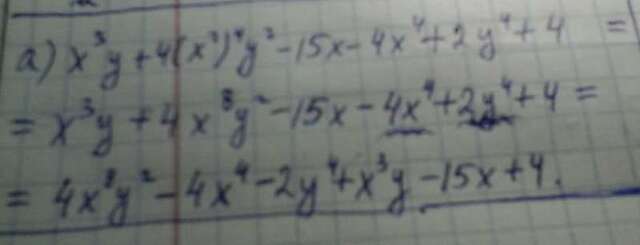 а) x³y + 4(x²)⁴y² - 15x - 4x⁴ + 2y⁴ + 4 =
= x³y + 4x⁸y² - 15x - 4x⁴ + 2y⁴ + 4 =
= 4x⁸y² - 4x⁴ - 2y⁴ + x³y - 15x + 4.